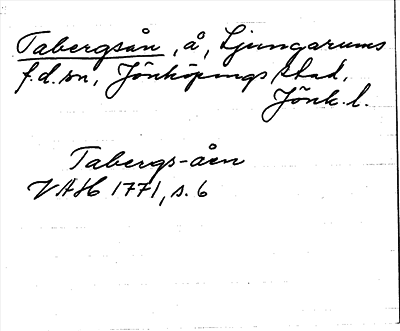 Tabergsån, å, Ljungarums
f.d. sn, Jönköpings stad,
Jönk. l.
Tabergs-åen
VAH 1771, s. 6